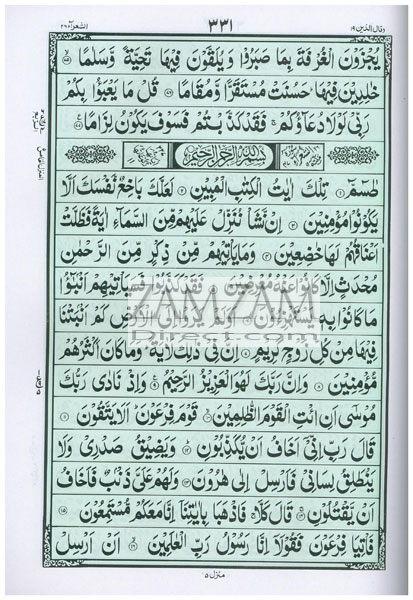 وقال الذين ١٩
٣٣١
الشعرآء ٢٦
يُجْزَوْنَ الْغُرْفَةَ بِمَا صَبَرُوْا وَيُلَقَّوْنَ فِيْهَا تَحِيَّةً وَّسَلٰمًا
خٰلِدِيْنَ فِيْهَا حَسُنَتْ مُسْتَقَرًّا وَّمُقَامًا قُلْ مَا يَعْبَؤُا بِكُمْ
رَبِّيْ لَوْلَا دُعَآؤُكُمْ فَقَدْ كَذَّبْتُمْ فَسَوْفَ يَكُوْنُ لِزَامًا
بِسْمِ اللّٰهِ الرَّحْمٰنِ الرَّحِيْمِ
طٰسٓمّٓ تِلْكَ اٰيٰتُ الْكِتٰبِ الْمُبِيْنِ لَعَلَّكَ بَاخِعٌ نَّفْسَكَ اَلَّا
يَكُوْنُوْا مُؤْمِنِيْنَ اِنْ نَّشَاْ نُنَزِّلْ عَلَيْهِمْ مِّنَ السَّمَآءِ اٰيَةً فَظَلَّتْ
اَعْنَاقُهُمْ لَهَا خٰضِعِيْنَ وَمَا يَاْتِيْهِمْ مِّنْ ذِكْرٍ مِّنَ الرَّحْمٰنِ
مُحْدَثٍ اِلَّا كَانُوْا عَنْهُ مُعْرِضِيْنَ فَقَدْ كَذَّبُوْا فَسَيَاْتِيْهِمْ اَنْۢبٰٓؤُا
مَا كَانُوْا بِهٖ يَسْتَهْزِءُوْنَ اَوَلَمْ يَرَوْا اِلَى الْاَرْضِ كَمْ اَنْۢبَتْنَا
فِيْهَا مِنْ كُلِّ زَوْجٍ كَرِيْمٍ اِنَّ فِيْ ذٰلِكَ لَاٰيَةً وَمَا كَانَ اَكْثَرُهُمْ
مُّؤْمِنِيْنَ وَاِنَّ رَبَّكَ لَهُوَ الْعَزِيْزُ الرَّحِيْمُ وَاِذْ نَادٰى رَبُّكَ
مُوْسٰٓى اَنِ ائْتِ الْقَوْمَ الظّٰلِمِيْنَ قَوْمَ فِرْعَوْنَ اَلَا يَتَّقُوْنَ
قَالَ رَبِّ اِنِّيْٓ اَخَافُ اَنْ يُّكَذِّبُوْنِ وَيَضِيْقُ صَدْرِيْ وَلَا
يَنْطَلِقُ لِسَانِيْ فَاَرْسِلْ اِلٰى هٰرُوْنَ وَلَهُمْ عَلَيَّ ذَنْۢبٌ فَاَخَافُ
اَنْ يَّقْتُلُوْنِ قَالَ كَلَّا فَاذْهَبَا بِاٰيٰتِنَآ اِنَّا مَعَكُمْ مُّسْتَمِعُوْنَ
فَاْتِيَا فِرْعَوْنَ فَقُوْلَآ اِنَّا رَسُوْلُ رَبِّ الْعٰلَمِيْنَ اَنْ اَرْسِلْ
منزل ٥
ZAMZAM